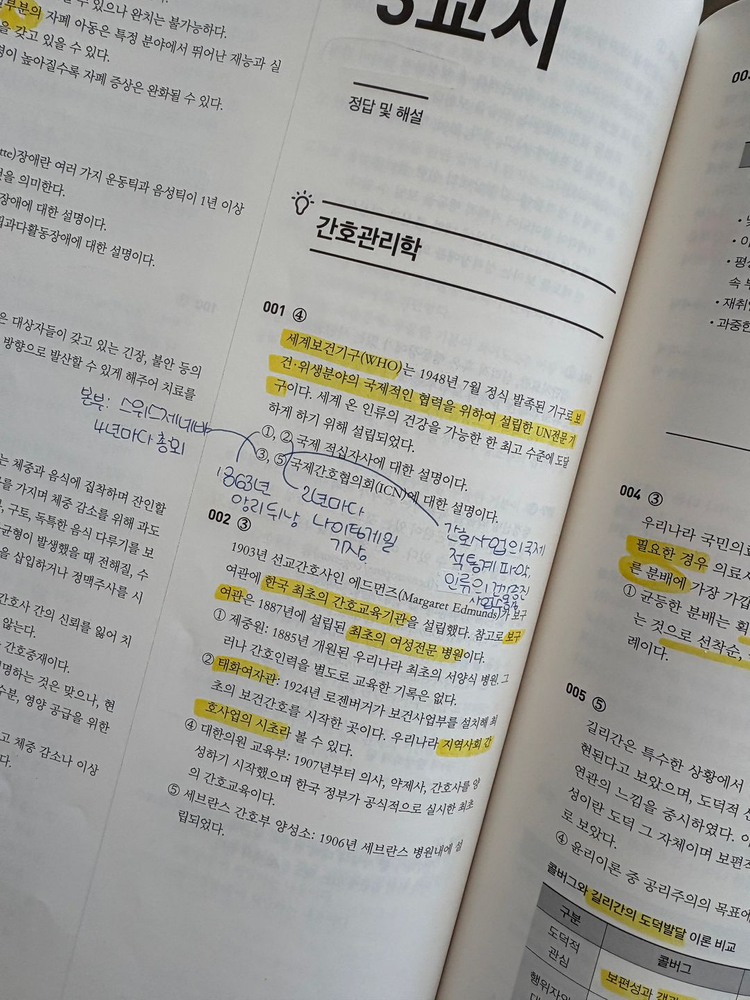 부분의 자폐 아동은 특정 분야에서 뛰어난 재능과 실
수 있으나 완치는 불가능하다.
을 갖고 있을 수 있다.
이 높아질수록 자폐 증상은 완화될 수 있다.
장애란 여러 가지 운동틱과 음성틱이 1년 이상
것을 의미한다.
장애에 대한 설명이다.
과다활동장애에 대한 설명이다.
은 대상자들이 갖고 있는 긴장, 불안 등의
방향으로 발산할 수 있게 해주어 치료를
본부: 스위스제네바
4년마다 총회
는 체중과 음식에 집착하며 잔인할
를 가지며 체중 감소를 위해 과도
구토, 독특한 음식 다루기를 보
균형이 발생했을 때 전해질, 수
을 삽입하거나 정맥주사를 시
간호사 간의 신뢰를 잃어 치
않는다.
간호중재이다.
명하는 것은 맞으나, 현
수분, 영양 공급을 위한
고 체중 감소나 이상
다.
3교시
정답 및 해설
간호관리학
001 ④
세계보건기구(WHO)는 1948년 7월 정식 발족된 기구로 보
건·위생분야의 국제적인 협력을 위하여 설립한 UN전문기
구이다. 세계 온 인류의 건강을 가능한 한 최고 수준에 도달
하게 하기 위해 설립되었다.
①, ② 국제 적십자사에 대한 설명이다.
③, ⑤ 국제간호협의회(ICN)에 대한 설명이다.
1863년
앙리뒤낭
2년마다
나이팅게일
기장
간호사업의 국제
적 통계 파악,
인류의 건강증진
002 ③
1903년 선교간호사인 에드먼즈(Margaret Edmunds)가 보구
여관에 한국 최초의 간호교육기관을 설립했다. 참고로 보구
여관은 1887년에 설립된 최초의 여성전문 병원이다.
① 제중원: 1885년 개원된 우리나라 최초의 서양식 병원. 그
러나 간호인력을 별도로 교육한 기록은 없다.
② 태화여자관: 1924년 로젠버거가 보건사업부를 설치해 최
초의 보건간호를 시작한 곳이다. 우리나라 지역사회 간
호사업의 시초라 볼 수 있다.
④ 대한의원 교육부: 1907년부터 의사, 약제사, 간호사를 양
성하기 시작했으며 한국 정부가 공식적으로 실시한 최초
의 간호교육이다.
⑤ 세브란스 간호부 양성소: 1906년 세브란스 병원내에 설
립되었다.
003
• 평
속
• 재취
• 과중한
004 ③
우리나라 국민의료
필요한 경우 의료
른 분배에 가장 가깝
① 균등한 분배는
는 것으로 선착순,
레이다.
005 ⑤
길리간은 특수한 상황에서
현된다고 보았으며, 도덕적
연관의 느낌을 중시하였다.
성이란 도덕 그 자체이며 보편적
로 보았다.
④ 윤리이론 중 공리주의의 목표에
콜버그와 길리간의 도덕발달 이론 비교
구분
콜버그
도덕적
관심
보편성과
행위자의